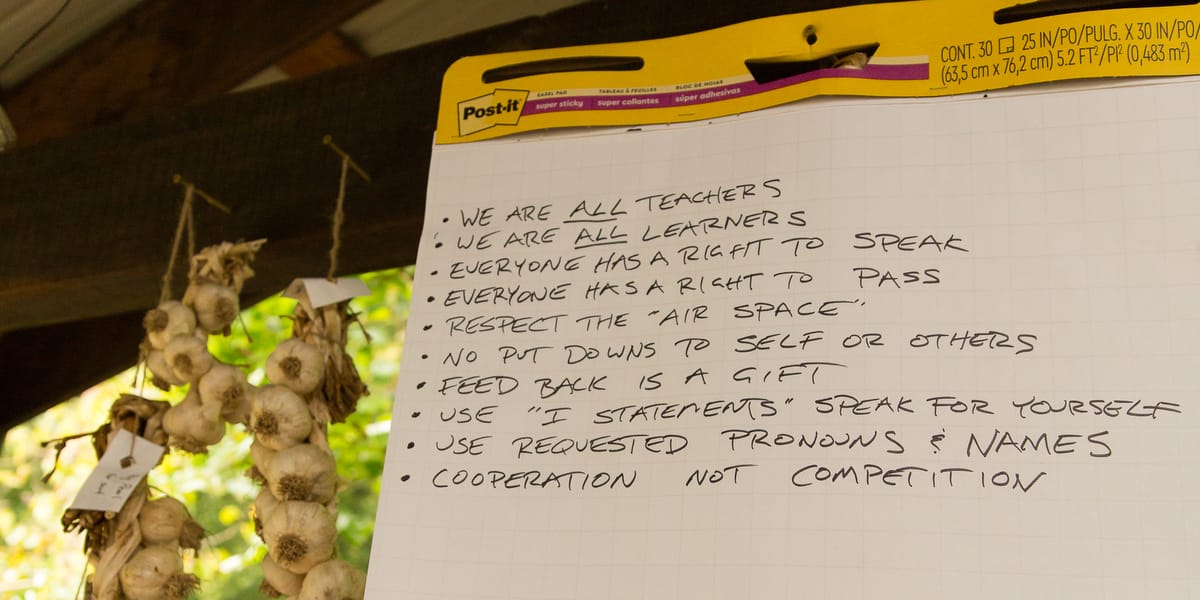 Post-it
EASEL PAD
super sticky
TABLEAU À FEUILLES
super collantes
BLOC DE HOJAS
súper adhesivas
CONT. 30 25 IN/PO/PULG. X 30 IN/PO/
(63,5 cm x 76,2 cm) 5.2 FT²/PI² (0,483 m²)
• WE ARE ALL TEACHERS
• WE ARE ALL LEARNERS
• EVERYONE HAS A RIGHT TO SPEAK
• EVERYONE HAS A RIGHT TO PASS
• RESPECT THE "AIR SPACE"
• NO PUT DOWNS TO SELF OR OTHERS
• FEED BACK IS A GIFT
• USE "I STATEMENTS" SPEAK FOR YOURSELF
• USE REQUESTED PRONOUNS & NAMES
• COOPERATION NOT COMPETITION